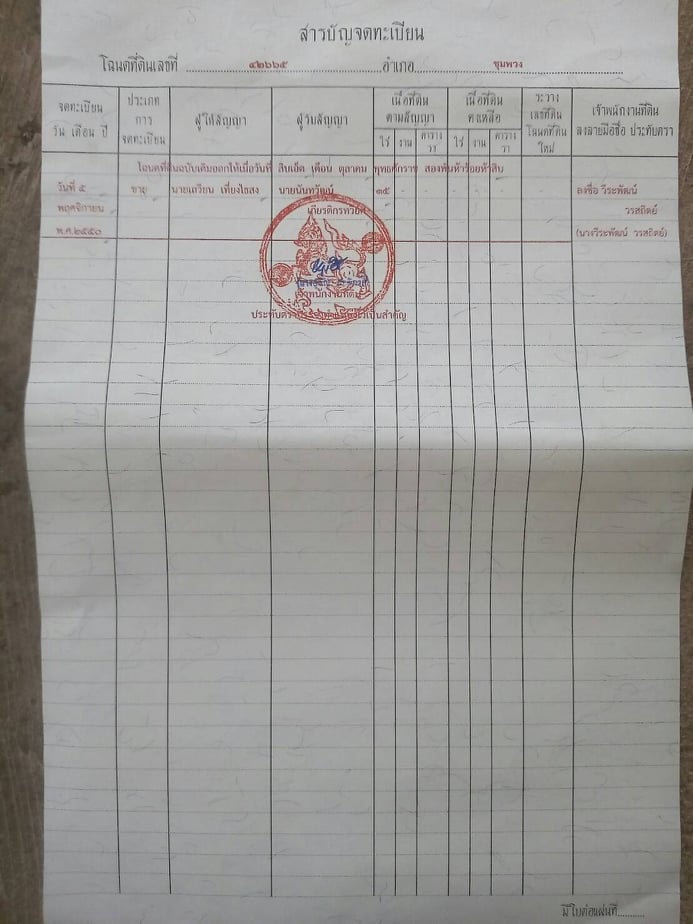 สารบัญจดทะเบียน
โฉนดที่ดินเลขที่ ๔๒๖๖๕ อำเภอ ชุมพวง
จดทะเบียน วัน เดือน ปี
ประเภท การ จดทะเบียน
ผู้ให้สัญญา
ผู้รับสัญญา
เนื้อที่ดิน ตามสัญญา
ไร่ งาน ตาราง วา
เนื้อที่ดิน คงเหลือ
ไร่ งาน ตาราง วา
ระวาง เลขที่ดิน โฉนดที่ดิน ใหม่
เจ้าพนักงานที่ดิน ลงลายมือชื่อ ประทับตรา
โฉนดที่ดินฉบับเดิมออกให้เมื่อวันที่ สิบเอ็ด เดือน ตุลาคม พุทธศักราช สองพันห้าร้อยห้าสิบ
วันที่ ๕ ขาย นายเถวียน เที่ยงไธสง นายนันทวัฒน์ ๑๕ - - - - - - ลงชื่อ วีระพัฒน์
พฤศจิกายน เกียรติกรทวีย์ วรสถิตย์
พ.ศ.๒๕๕๐ (นางวีระพัฒน์ วรสถิตย์)
เจ้าพนักงานที่ดิน
ประทับตรา เป็นสำคัญ
มีใบต่อแผ่นที่